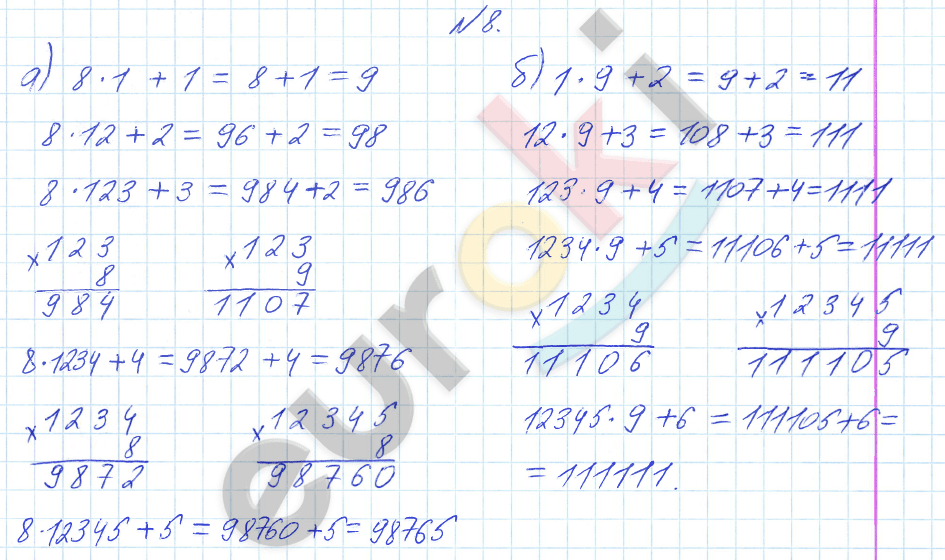 №8.
а) 8·1 + 1 = 8 + 1 = 9
8·12 + 2 = 96 + 2 = 98
8·123 + 3 = 984 + 2 = 986
× 123
8
984
× 123
9
1107
8·1234 + 4 = 9872 + 4 = 9876
× 1234
8
9872
× 12345
8
98760
8·12345 + 5 = 98760 + 5 = 98765
б) 1·9 + 2 = 9 + 2 = 11
12·9 + 3 = 108 + 3 = 111
123·9 + 4 = 1107 + 4 = 1111
1234·9 + 5 = 11106 + 5 = 11111
× 1234
9
11106
× 12345
9
111105
12345·9 + 6 = 111105 + 6 =
= 111111.
euroki